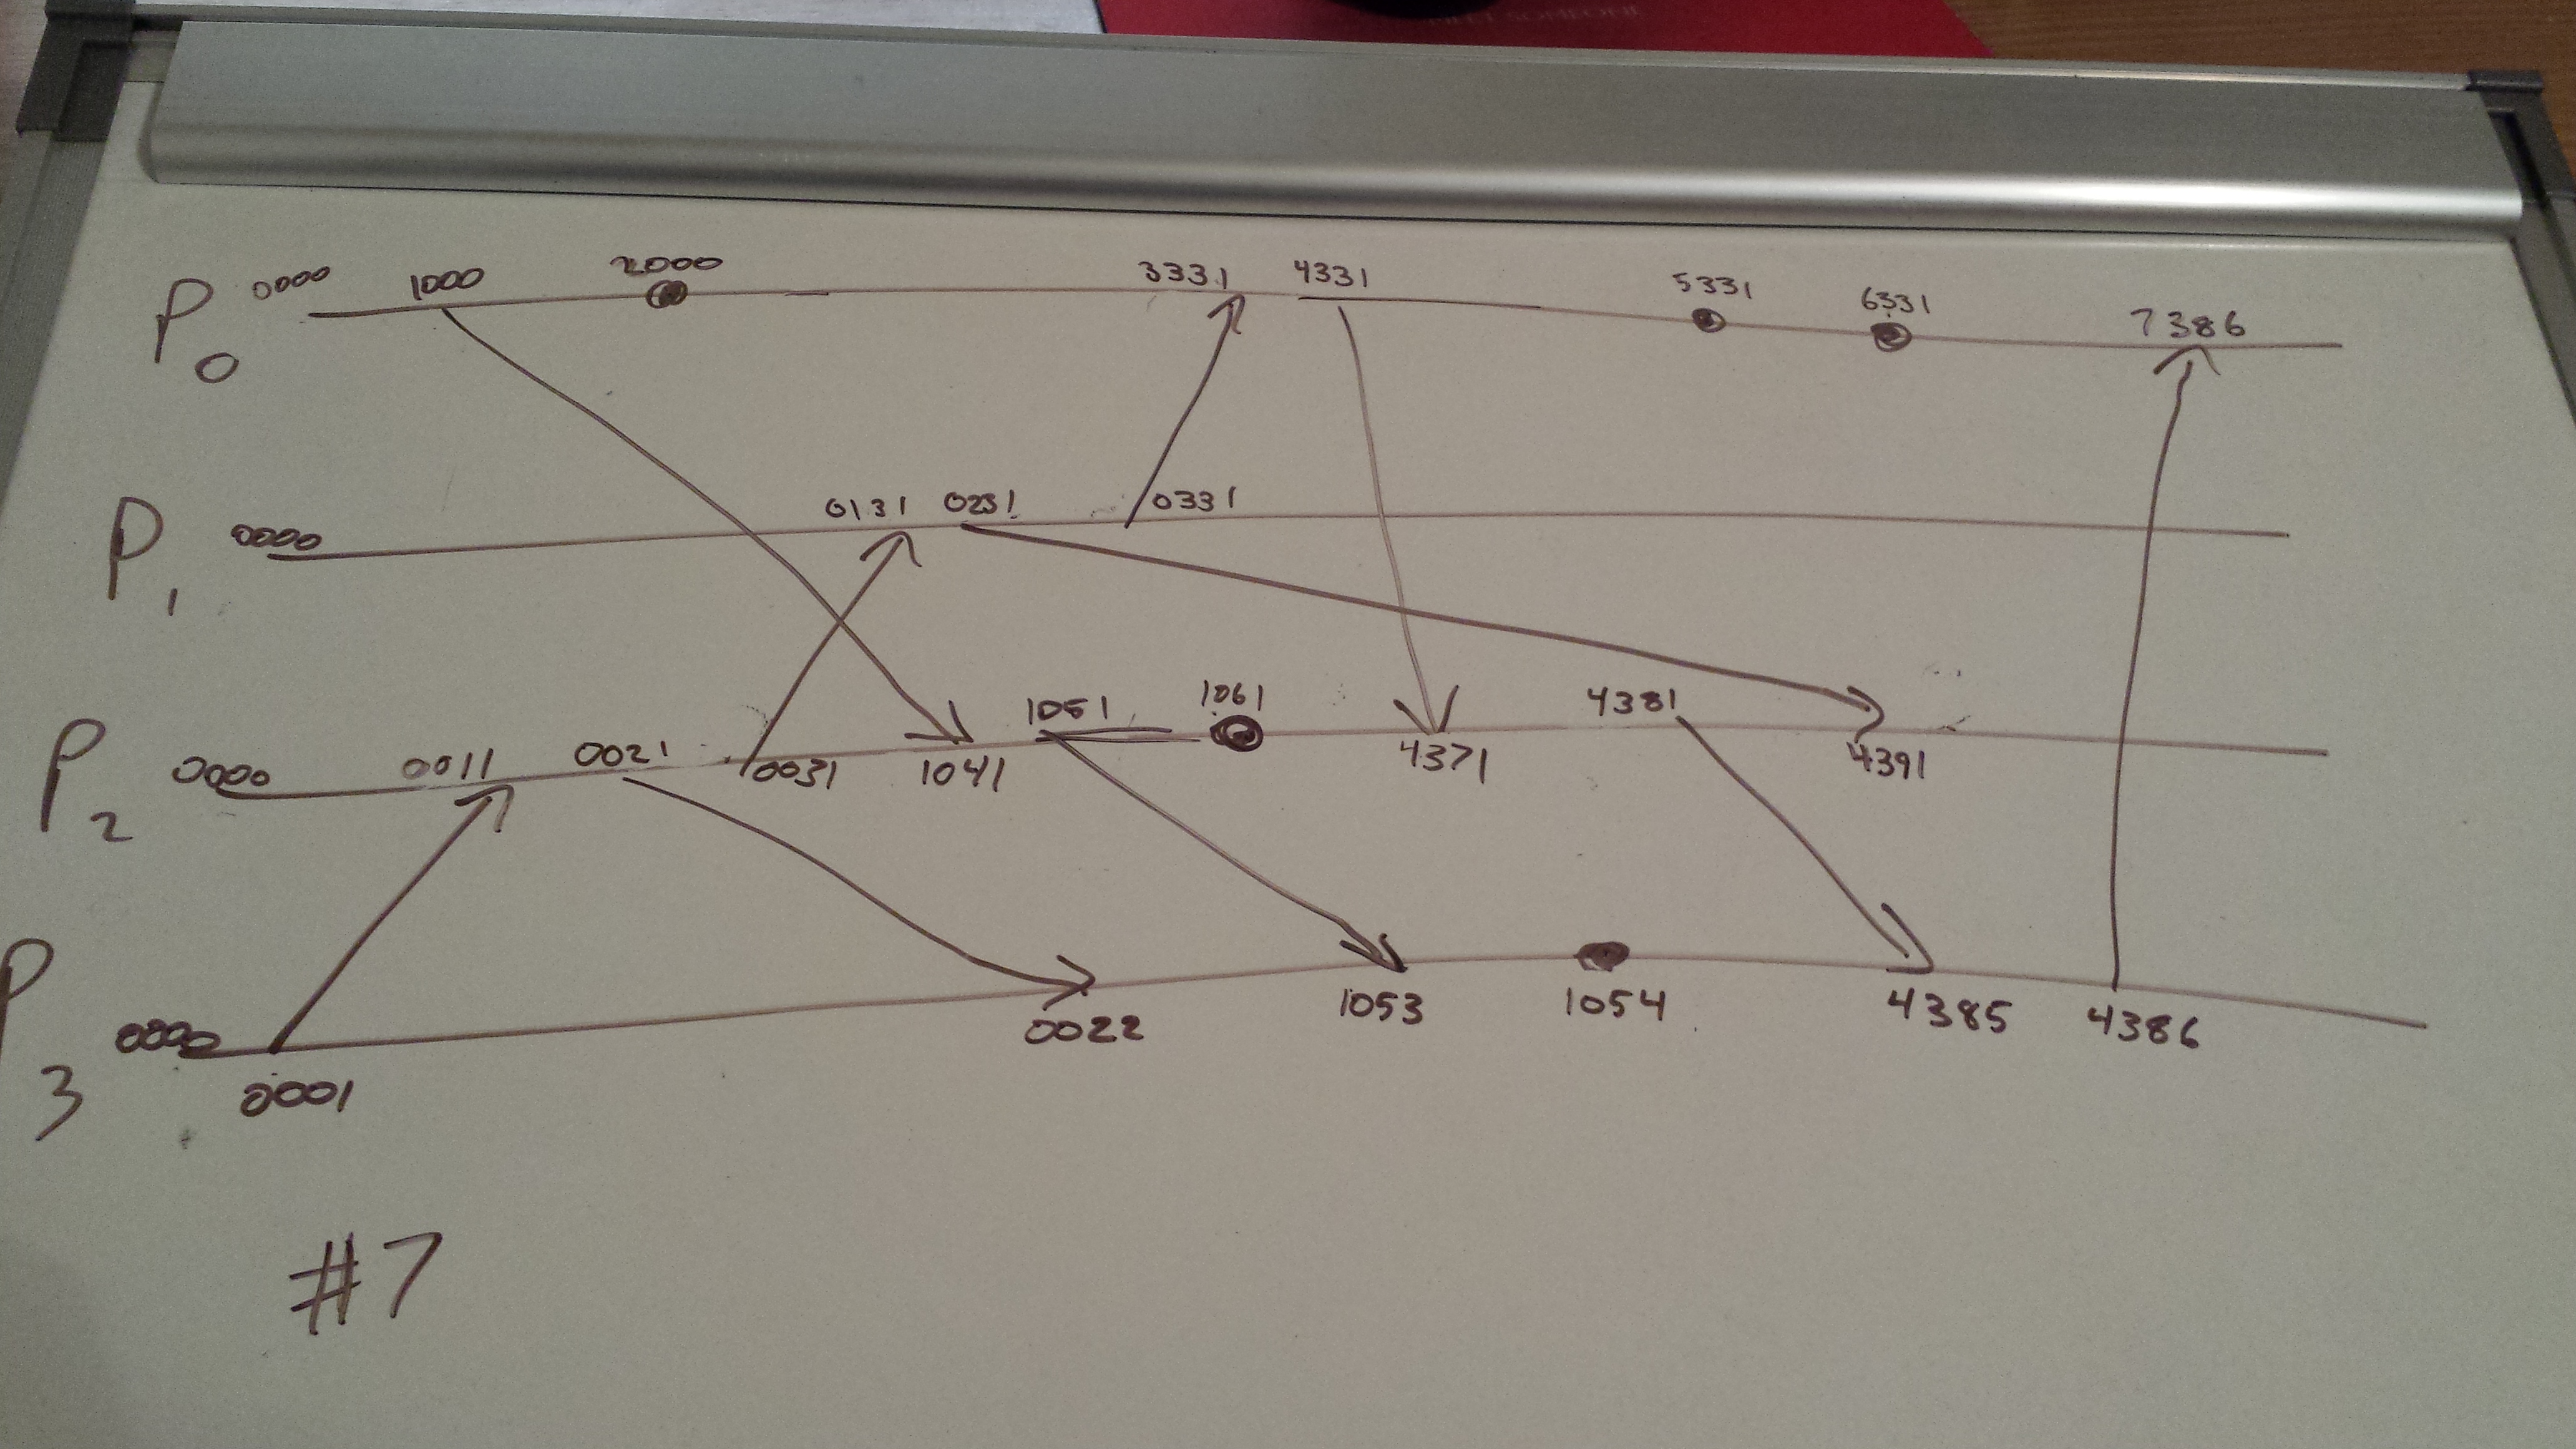 MEET SOMEONE
P0 0000 1000 2000 3331 4331 5331 6331 7386
P1 0000 0131 0231 0331
P2 0000 0011 0021 0031 1041 1051 1061 4371 4381 4391
P3 0000 0001 0022 1053 1054 4385 4386
#7